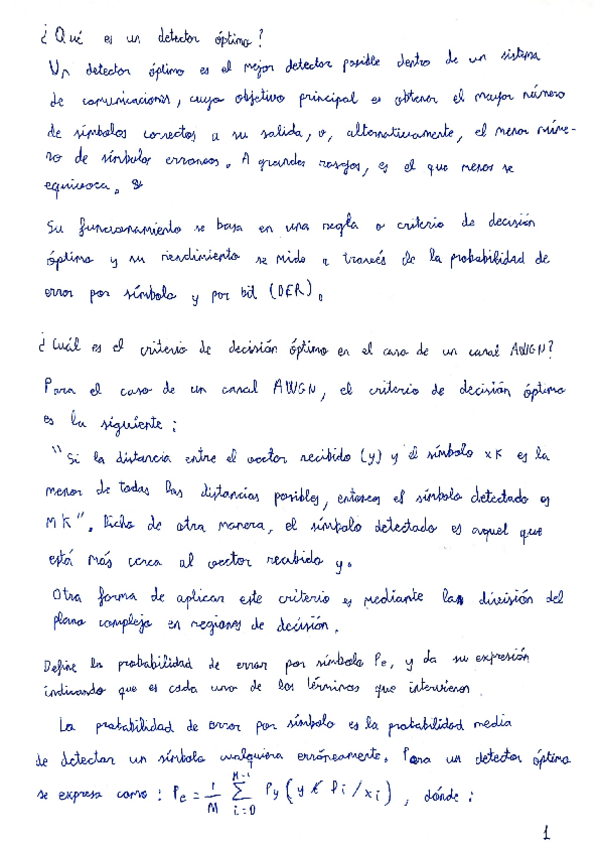 ¿Qué es un detector óptimo?
Un detector óptimo es el mejor detector posible dentro de un sistema
de comunicaciones, cuyo objetivo principal es obtener el mayor número
de símbolos correctos a su salida, o, alternativamente, el menor núme-
ro de símbolos erroneos. A grandes rasgos, es el que menos se
equivoca.
Su funcionamiento se basa en una regla o criterio de decisión
óptima y su rendimiento se mide a través de la probabilidad de
error por símbolo y por bit (BER).
¿Cuál es el criterio de decisión óptimo en el caso de un canal AWGN?
Para el caso de un canal AWGN, el criterio de decisión óptimo
es la siguiente:
"Si la distancia entre el vector recibido (y) y el símbolo xk es la
menor de todas las distancias posibles, entonces el símbolo detectado es
mk". Dicho de otra manera, el símbolo detectado es aquel que
está más cerca al vector recibido y.
Otra forma de aplicar este criterio es mediante la división del
plano complejo en regiones de decisión.
Define la probabilidad de error por símbolo Pe, y da su expresión
indicando que es cada uno de los términos que intervienen.
La probabilidad de error por símbolo es la probabilidad media
de detectar un símbolo cualquiera erróneamente. Para un detector óptimo
se expresa como: Pe = 1/M Σ_{i=0}^{M-1} Py(y ∉ Di/xi), dónde:
1